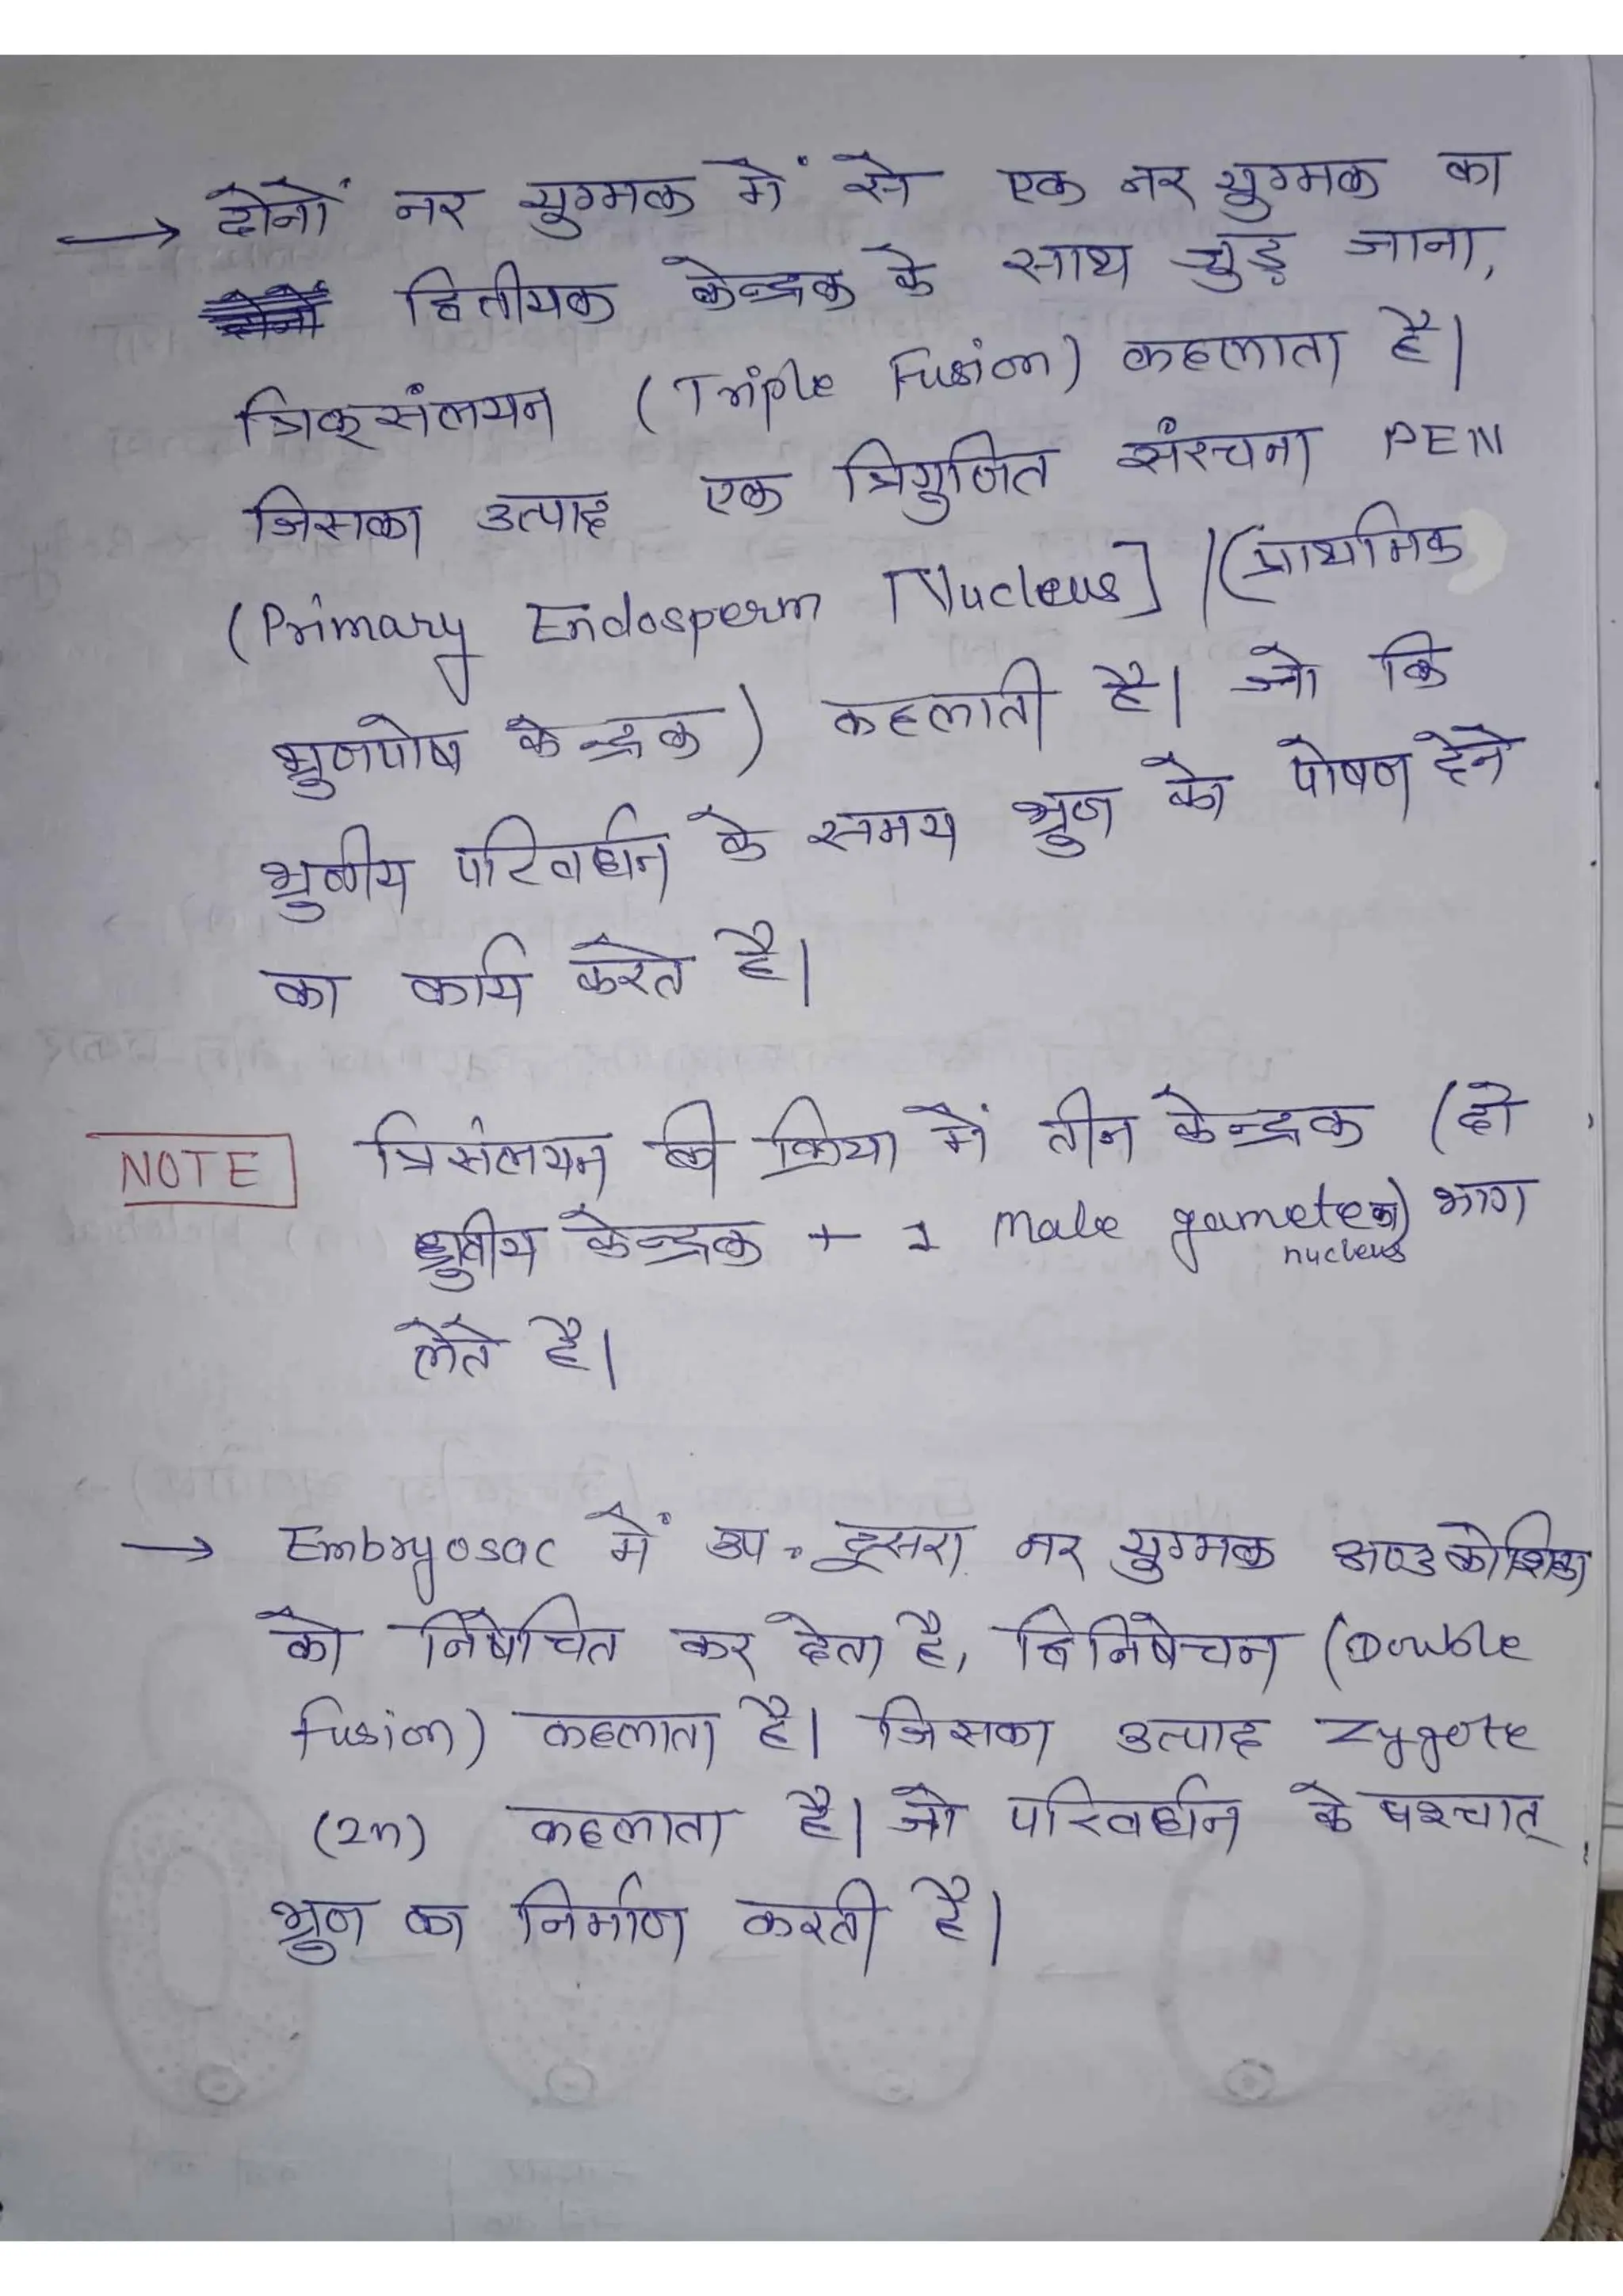 → दोनों नर युग्मक में से एक नर युग्मक का
द्वितीयक केन्द्रक के साथ जुड़ जाना,
त्रिक्संलयन (Triple Fusion) कहलाता है।
जिसका उत्पाद एक त्रिगुणित संरचना PEN
(Primary Endosperm Nucleus] /(प्राथमिक
भ्रुणपोष केन्द्रक) कहलाती है। जो कि
भ्रुणीय परिवर्धन के समय भ्रुण को पोषण देने
का कार्य करते है।
NOTE त्रिसंलयन की क्रिया में तीन केन्द्रक (दो
ध्रुवीय केन्द्रक + 1 male gamete का) भाग
nucleus
लेते है।
→ Embryosac में उप. दूसरा नर युग्मक अण्डकोशिका
को निषेचित कर देता है, द्विनिषेचन (Double
fusion) कहलाता है। जिसका उत्पाद Zygote
(2n) कहलाता है। जो परिवर्धन के पश्चात्
भ्रुण का निर्माण करती है।